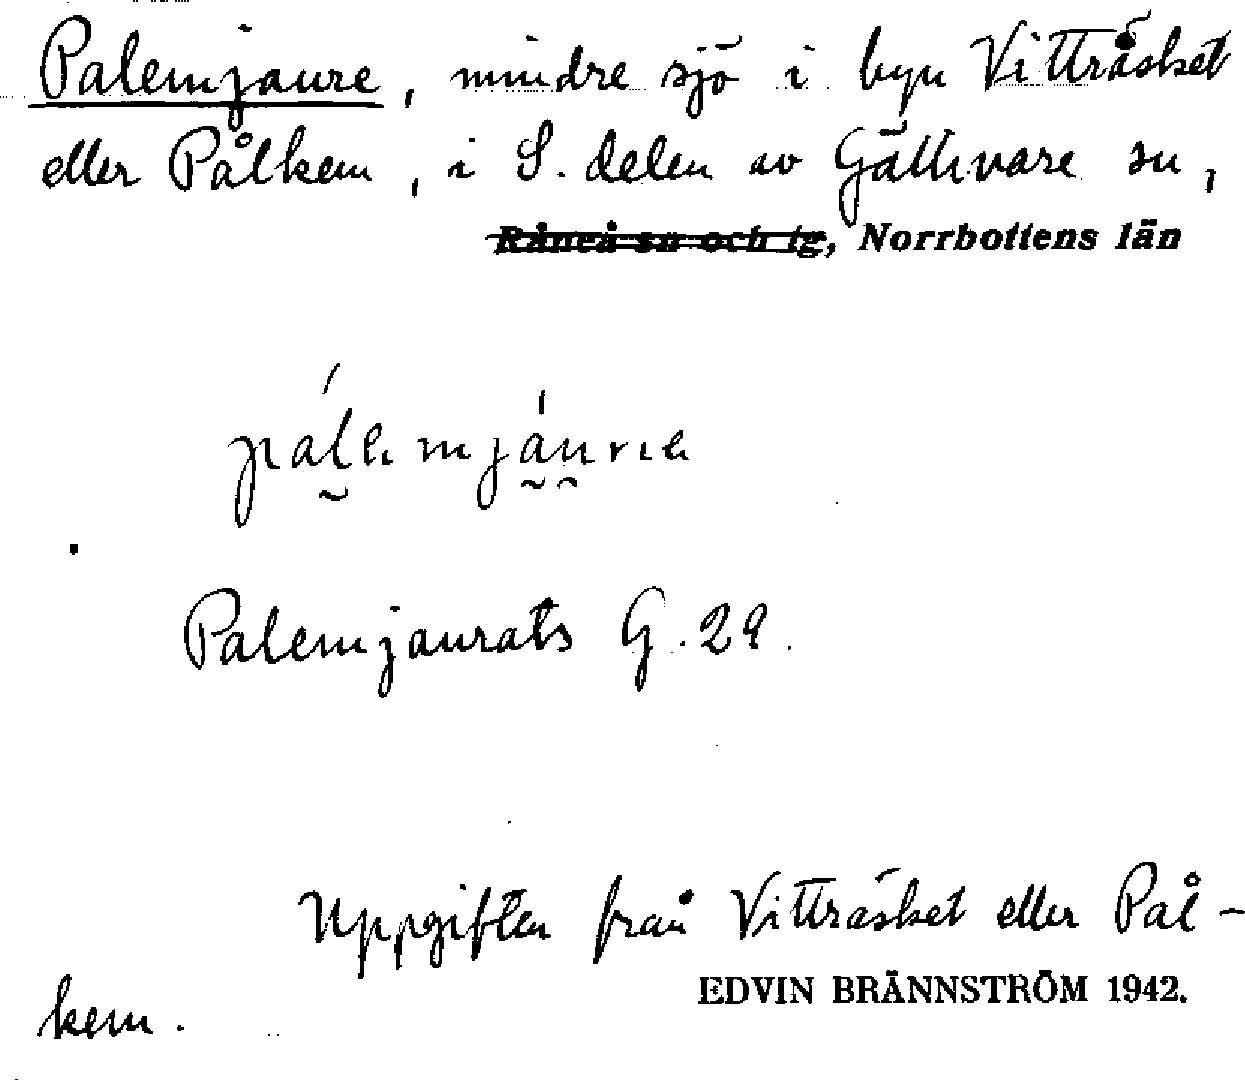 Palemjaure, mindre sjö i byn Vitträsket
eller Pålkem, i S. delen av Gällivare sn,
Råneå sn och tg, Norrbottens län
Palemjaurats G. 29.
Uppgiften från Vitträsket eller Pål-
kem.
EDVIN BRÄNNSTRÖM 1942.